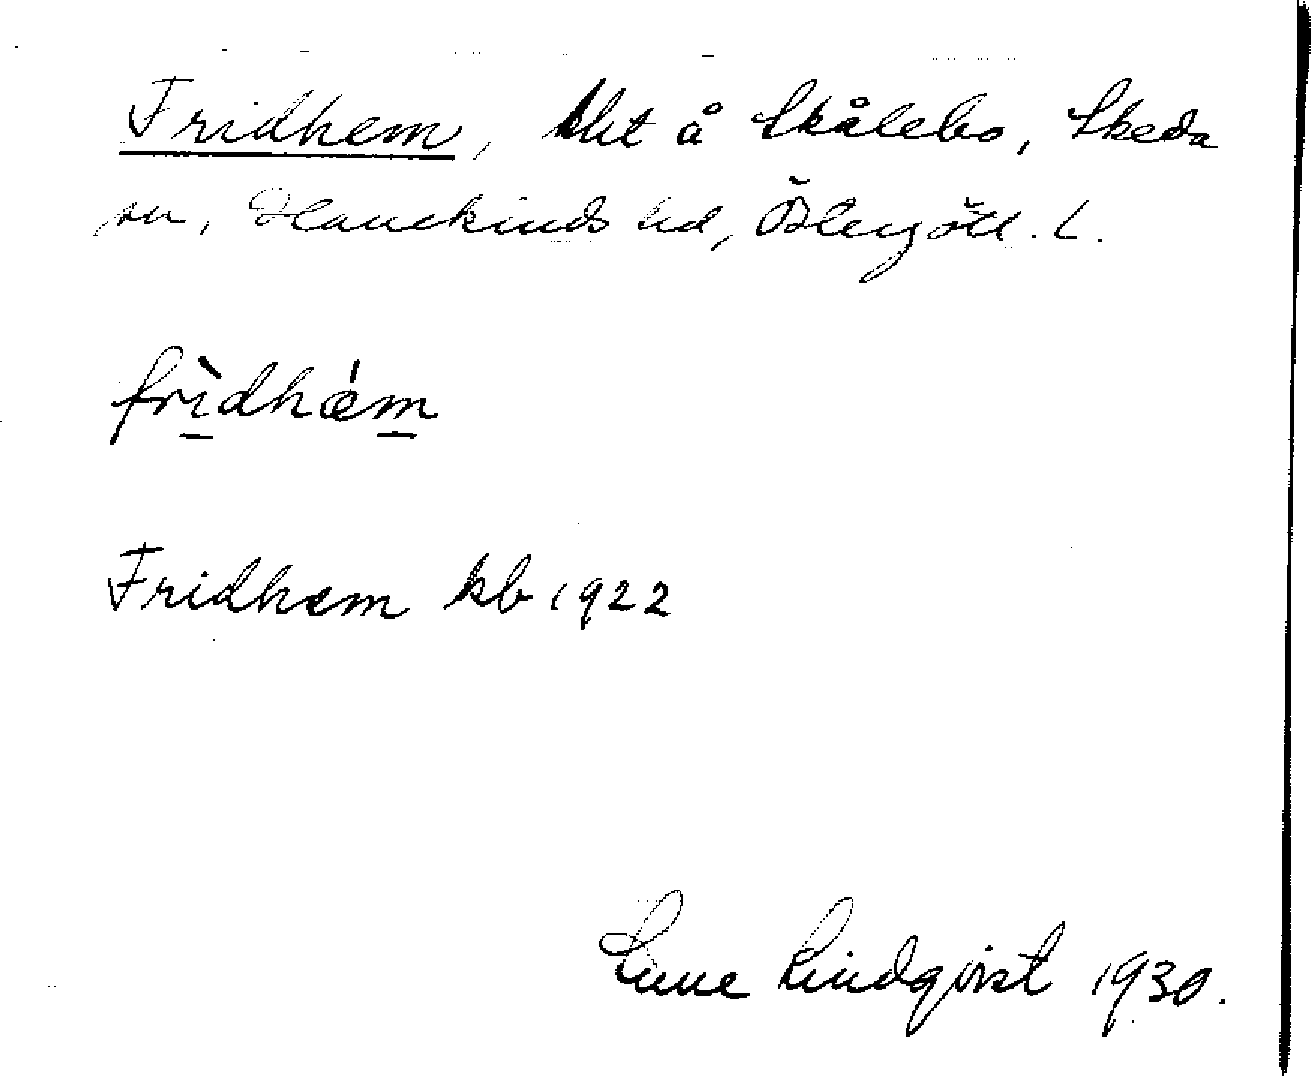 Fridhem, lht å Skålebo, Skeda
sn, Hanekinds hd, Östergötl. L.
frìdhǽm
Fridhem kb 1922
Sune Lindqvist 1930.